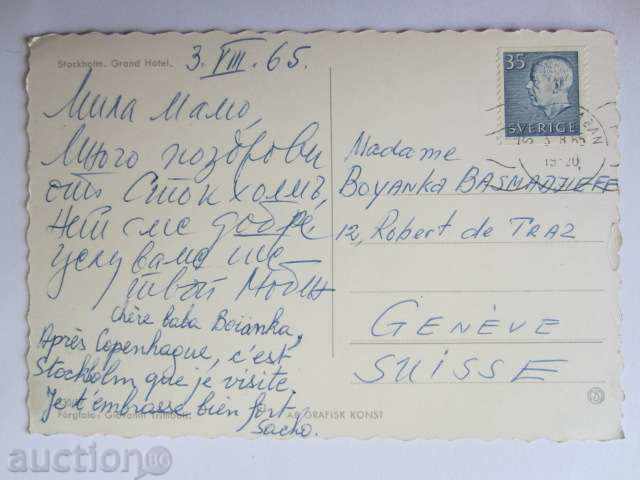 Stockholm. Grand Hotel.
3. VIII. 65.
Мила Мамо,
Много поздрави
отъ Стокхолмъ,
сме добре.
целувам те
твой
chère baba Boïanka,
Après Copenhague, c'est
Stockholm que je visite.
Je t'embrasse bien fort.
Sacho.
Färgfoto: Giovanni Trimboli.
AB GRAFISK KONST
35
SVERIGE
Madame
BOYANKA BASMADJIEFF
12, Robert de TRAZ
GENÈVE
SUISSE
auction.BG